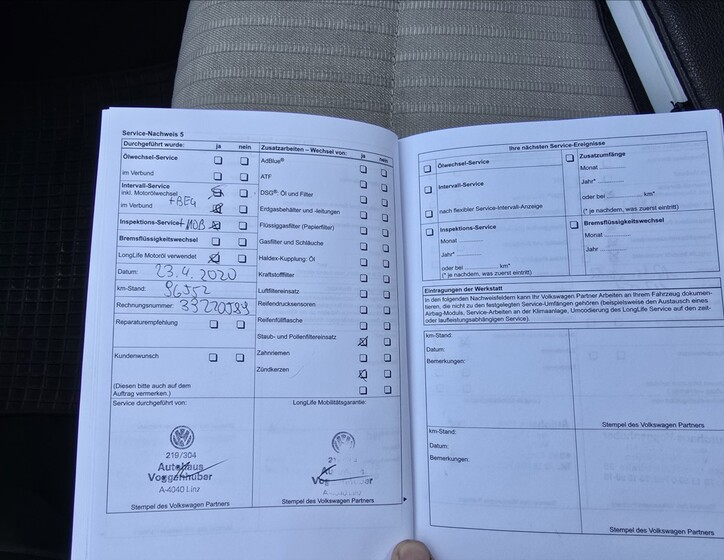 Service-Nachweis 5
Durchgeführt wurde: ja nein
Ölwechsel-Service
im Verbund
Intervall-Service
inkl. Motorölwechsel
+BEG
im Verbund
Inspektions-Service +MDB
Bremsflüssigkeitswechsel
LongLife Motoröl verwendet
Datum: 23.4.2020
km-Stand: 96552
Rechnungsnummer:
Reparaturempfehlung
Kundenwunsch
(Diesen bitte auch auf dem
Auftrag vermerken.)
Service durchgeführt von:
219/304
Autohaus
Voggenhuber
A-4040 Linz
Stempel des Volkswagen Partners
Zusatzarbeiten – Wechsel von: ja nein
AdBlue®
ATF
DSG®: Öl und Filter
Erdgasbehälter und -leitungen
Flüssiggasfilter (Papierfilter)
Gasfilter und Schläuche
Haldex-Kupplung: Öl
Kraftstofffilter
Luftfiltereinsatz
Reifendrucksensoren
Reifenfüllflasche
Staub- und Pollenfiltereinsatz
Zahnriemen
Zündkerzen
LongLife Mobilitätsgarantie:
Stempel des Volkswagen Partners
Ihre nächsten Service-Ereignisse
Ölwechsel-Service
Intervall-Service
nach flexibler Service-Intervall-Anzeige
Inspektions-Service
Monat
Jahr*
oder bei km*
(* je nachdem, was zuerst eintritt)
Zusatzumfänge
Monat
Jahr*
oder bei km*
(* je nachdem, was zuerst eintritt)
Bremsflüssigkeitswechsel
Monat
Jahr
Eintragungen der Werkstatt
In den folgenden Nachweisfeldern kann Ihr Volkswagen Partner Arbeiten an Ihrem Fahrzeug dokumen-
tieren, die nicht zu den festgelegten Service-Umfängen gehören (beispielsweise den Austausch eines
Airbag-Moduls, Service-Arbeiten an der Klimaanlage, Umcodierung des LongLife Service auf den zeit-
oder laufleistungsabhängigen Service).
km-Stand:
Datum:
Bemerkungen:
Stempel des Volkswagen Partners
km-Stand:
Datum:
Bemerkungen:
Stempel des Volkswagen Partners